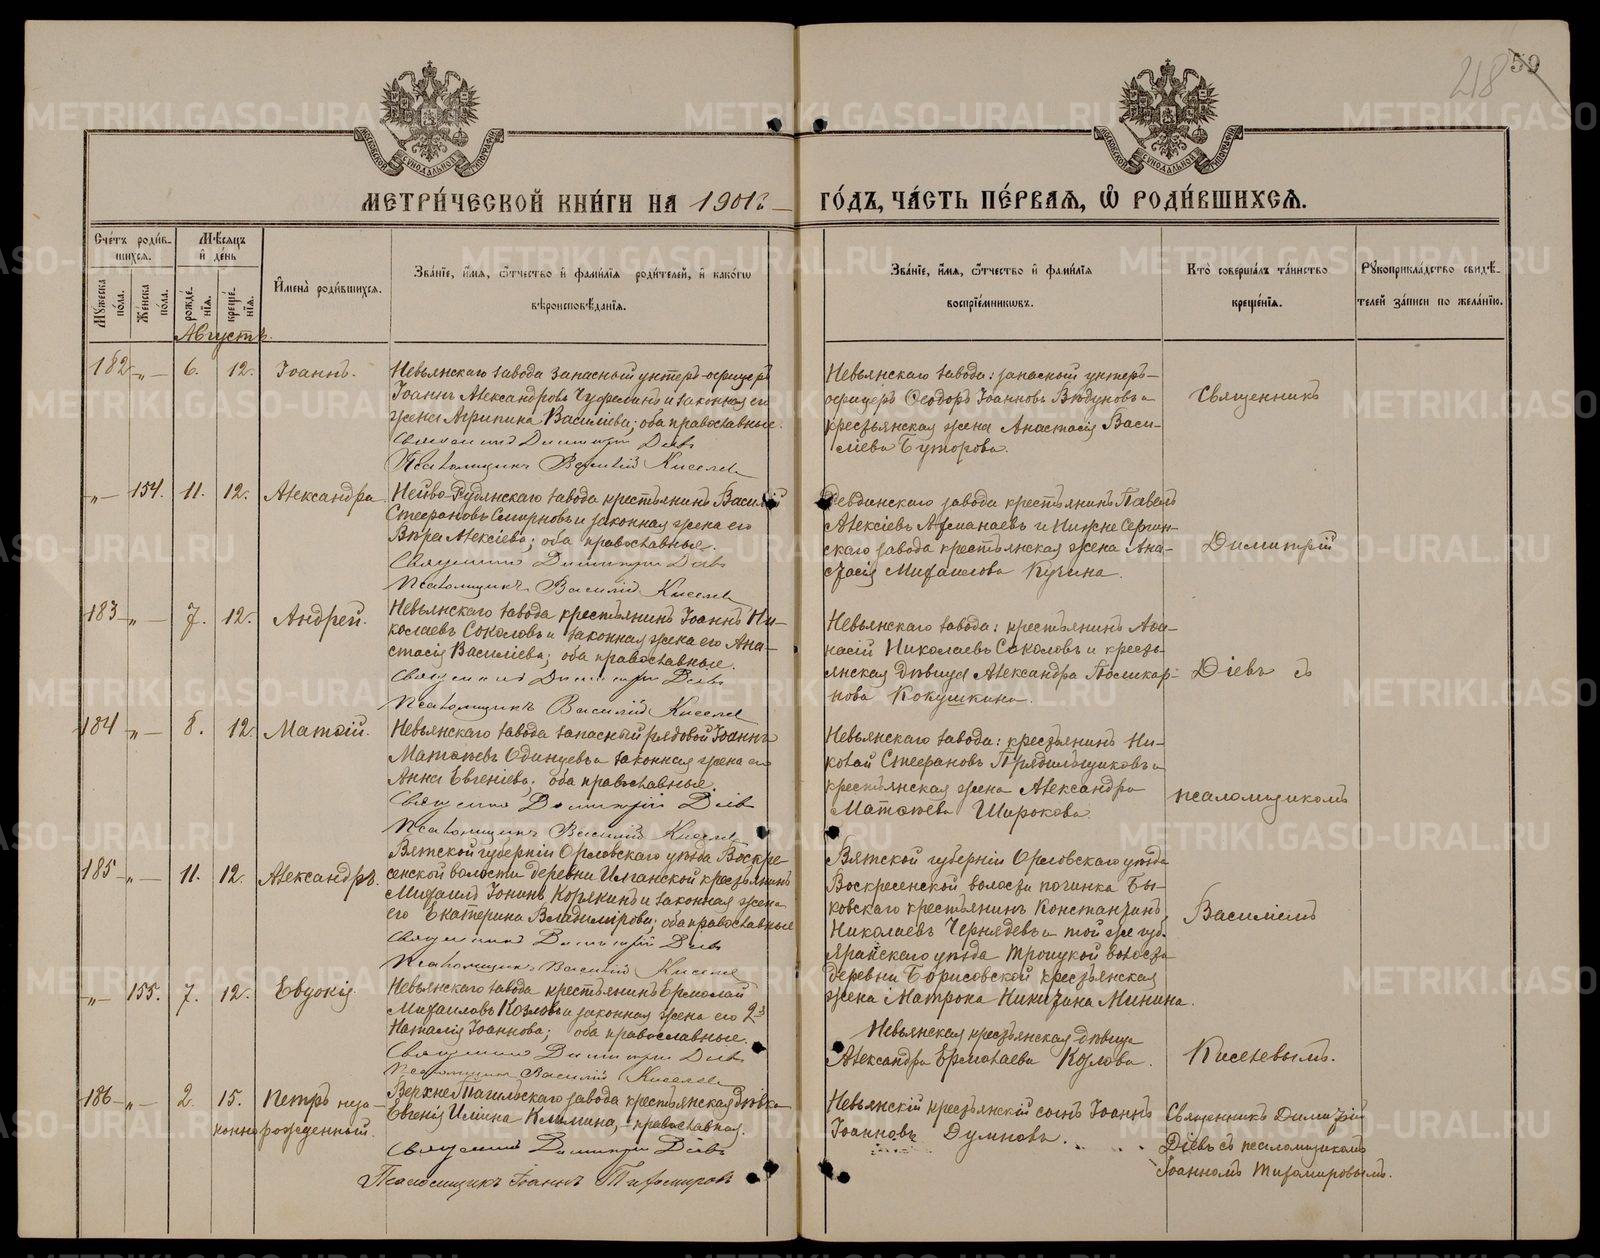 218 59
МЕТРИ́ЧЕСКОЙ КНИ́ГИ НА 1901й ГО́ДЪ, ЧА́СТЬ ПЕ́РВАЯ, Ѿ РОДИ́ВШИХСЯ.
Сче́тъ роди́вшихся.
Мꙋ́жеска по́ла.
Же́нска по́ла.
Мѣ́сяцъ и҆ де́нь
рожде́нія.
креще́нія.
И҆мена̀ роди́вшихся.
Зва́ніе, и҆́мя, ѻ҆́тчество и҆ фами́лія роди́телей, и҆ како́гѡ
вѣроисповѣ́данія.
Зва́ніе, и҆́мя, ѻ҆́тчество и҆ фами́лія
воспріе́мниковъ.
Кто̀ соверша́лъ та́инство
креще́нія.
Рꙋкоприкла́дство свидѣ́-
телей за́писи по жела́нію.
Августъ.
182 -„- 6. 12. Іоаннъ.
Невьянскаго завода запасный унтеръ-офицеръ
Іоаннъ Александровъ и законная его
жена Агрипина Василіева; оба православные.
Священникъ Димитрій Діевъ
Псаломщикъ Василій Киселевъ
Невьянскаго завода: запасный унтеръ-
офицеръ Ѳеодоръ Іоанновъ и
крестьянская жена Анастасія Васи-
ліева Буторова.
Священникъ
-„- 154. 11. 12. Александра
Нейво-Рудянскаго завода крестьянинъ Василій
Стефановъ Смирновъ и законная жена его
Вѣра Алексіева; оба православные.
Священникъ Димитрій Діевъ
Псаломщикъ Василій Киселевъ
Ревдинскаго завода крестьянинъ Павелъ
Алексіевъ и Нижне Сергин-
скаго завода крестьянская жена Ана-
стасія Михаилова Кузина.
Димитрій
183 -„- 7. 12. Андрей.
Невьянскаго завода крестьянинъ Іоаннъ Ни-
колаевъ Соколовъ и законная жена его Ана-
стасія Василіева; оба православные.
Священникъ Димитрій Діевъ
Псаломщикъ Василій Киселевъ
Невьянскаго завода: крестьянинъ Аѳа-
насій Николаевъ Соколовъ и кресть-
янская дѣвица Александра Поликар-
пова Кокушкина.
Діевъ съ
184 -„- 8. 12. Матѳій.
Невьянскаго завода запасный рядовой Іоаннъ
Матѳіевъ Одинцевъ и законная жена его
Анна Евгеніева; оба православные.
Священникъ Димитрій Діевъ
Псаломщикъ Василій Киселевъ
Невьянскаго завода: крестьянинъ Ни-
колай Стефановъ Прядильщиковъ и
крестьянская жена Александра
Матѳіева Широкова.
псаломщикомъ
185 -„- 11. 12. Александръ.
Вятской губерніи Орловскаго уѣзда Воскре-
сенской волости деревни крестьянинъ
Михаилъ Іонинъ и законная жена
его Екатерина Владимірова; оба православные
Священникъ Димитрій Діевъ
Псаломщикъ Василій Киселевъ
Вятской губерніи Орловскаго уѣзда
Воскресенской волости починка Бы-
ковскаго крестьянинъ Константинъ
Николаевъ Чернядевъ и той же губ.
Яранскаго уѣзда Троицкой волости
деревни Борисовской крестьянская
жена Матрона Никитина Минина.
Василіемъ
-„- 155. 7. 12. Евдокія.
Невьянскаго завода крестьянинъ Ермолай
Михаиловъ Козловъ и законная жена его 2я
Наталія Іоаннова; оба православные.
Священникъ Димитрій Діевъ
Псаломщикъ Василій Киселевъ
Невьянская крестьянская дѣвица
Александра Ермолаева Козлова.
Киселевымъ.
186 -„- 2. 15. Петръ неза-
коннорожденный.
Верхне Тагильскаго завода крестьянская дѣвка
Евгенія Иліина Клитина, православная.
Священникъ Димитрій Діевъ
Псаломщикъ Іоаннъ Тихомировъ
Невьянскій крестьянскій сынъ Іоаннъ
Іоанновъ Думновъ.
Священникъ Димитрій
Діевъ съ псаломщикомъ
Іоанномъ Тихомировымъ.
METRIKI.GASO-URAL.RU